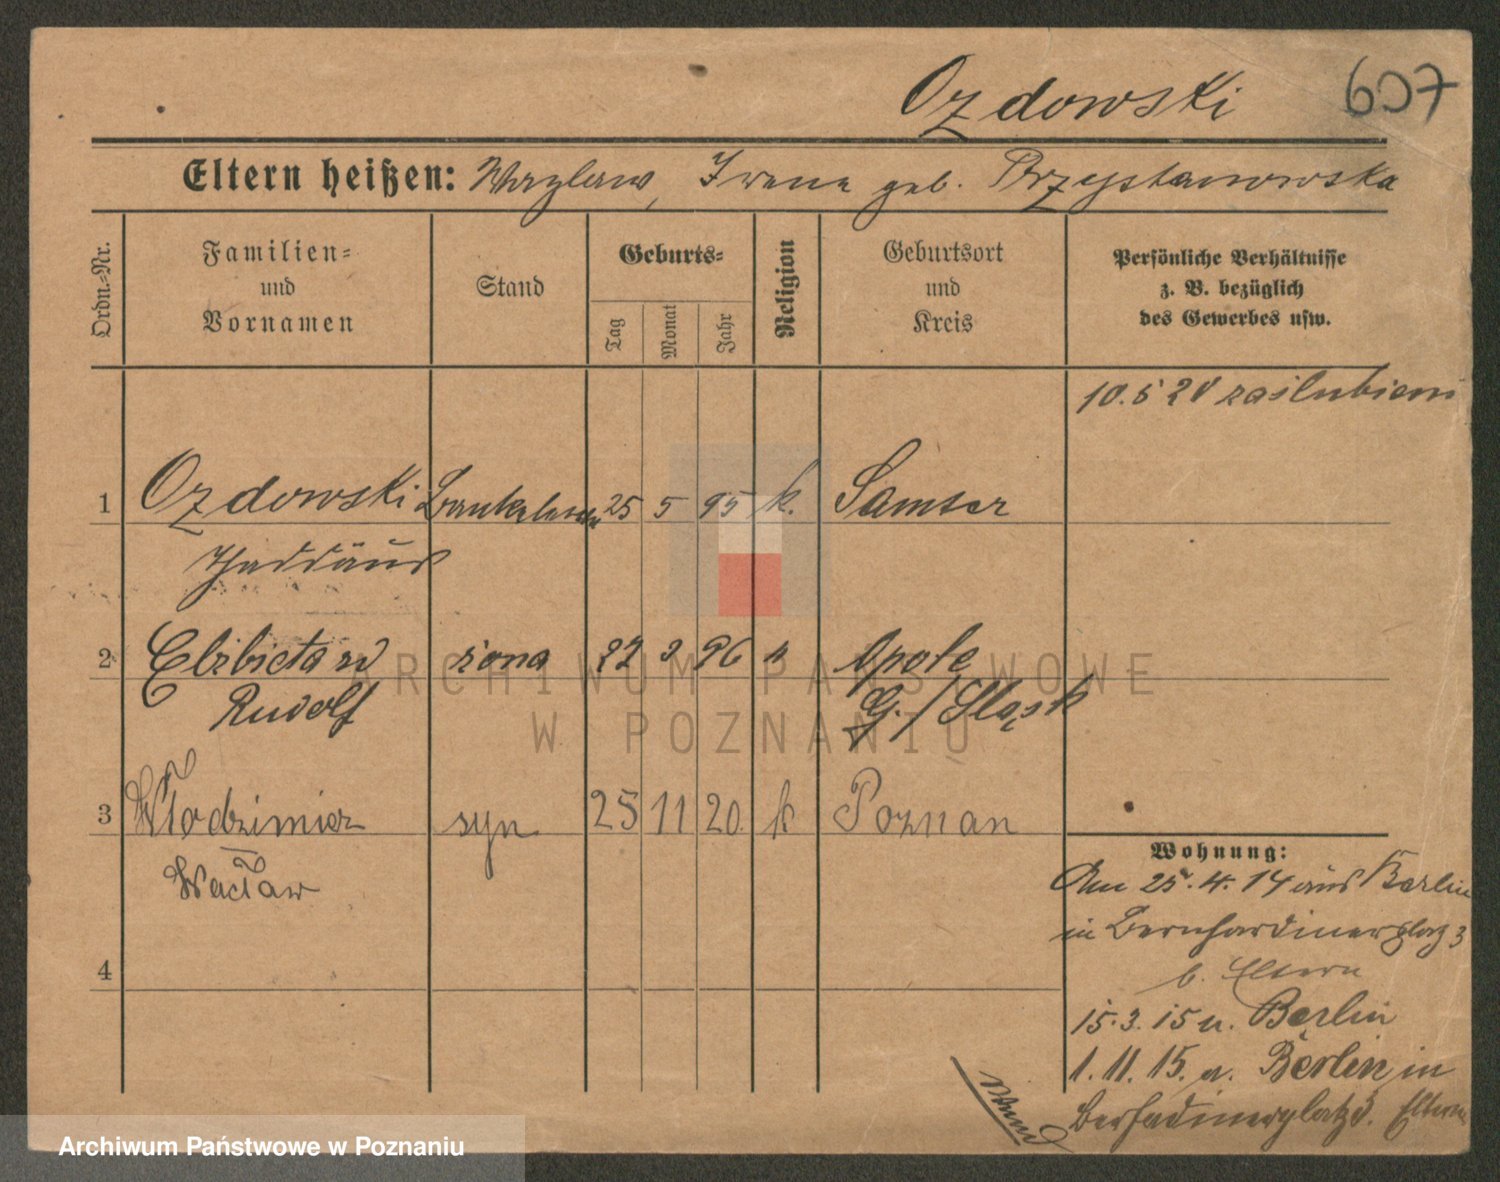 Ozdowski
607
Eltern heißen: Wazlaw, Irena geb. Przystanowska
Ordn.-Nr.
Familien-
und
Vornamen
Stand
Geburts-
Tag
Monat
Jahr
Religion
Geburtsort
und
Kreis
Persönliche Verhältnisse
z. B. bezüglich
des Gewerbes usw.
10.5 20 zaślubieni
1 Ozdowski 25 5 95 k. Samter
Thaddäus
2 Elzbieta zd żona 96 k Opole
Rudolf G./Śląsk
3 Włodzimierz syn 25 11 20. k Poznan
Wacław
4
Wohnung:
Am 25.4.14 aus Berlin
in Bernhardinerplatz 3
b. Eltern
15.3.15 n. Berlin
1.11.15. a. Berlin in
Eltern
ARCHIWUM PAŃSTWOWE
W POZNANIU
Archiwum Państwowe w Poznaniu